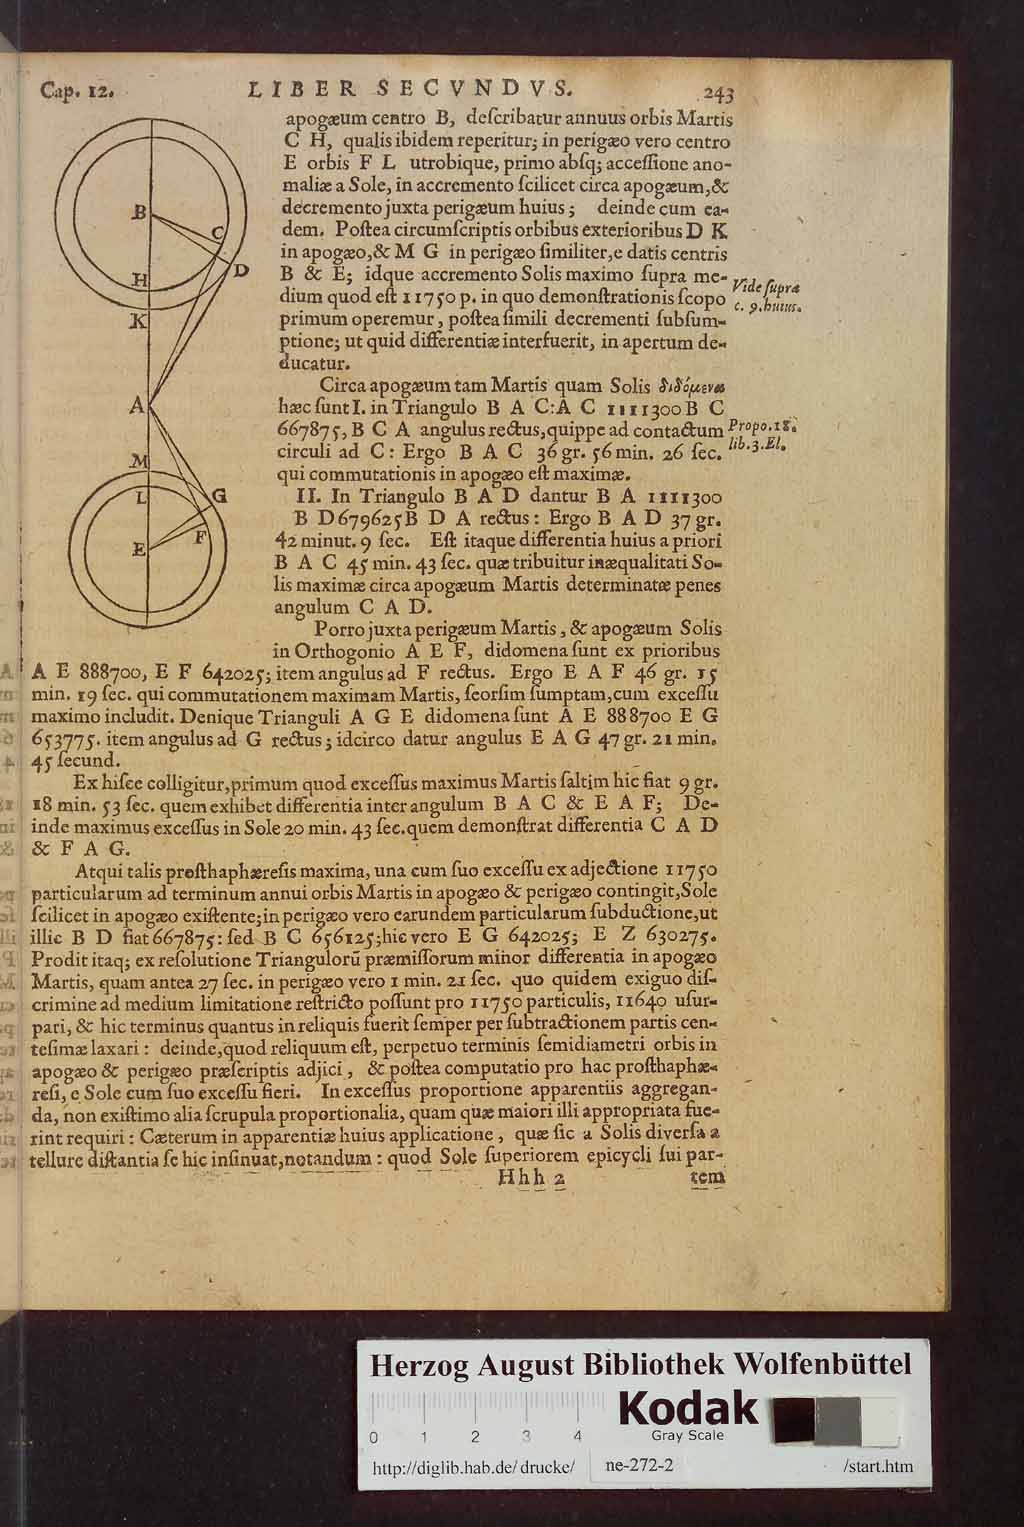 Cap. 12. LIBER SECVNDVS. 243
apogæum centro B, deſcribatur annuus orbis Martis
C H, qualis ibidem reperitur; in perigæo vero centro
E orbis F L utrobique, primo abſq; acceſſione ano-
maliæ a Sole, in accremento ſcilicet circa apogæum, &
decremento juxta perigæum huius; deinde cum ea-
dem. Poſtea circumſcriptis orbibus exterioribus D K
in apogæo, & M G in perigæo ſimiliter, e datis centris
B & E; idque accremento Solis maximo ſupra me-
dium quod eſt 11750 p. in quo demonſtrationis ſcopo
primum operemur, poſtea ſimili decrementi ſubſum-
ptione; ut quid differentiæ interfuerit, in apertum de-
ducatur.
Vide ſupra
c. 9. huius.
Circa apogæum tam Martis quam Solis διδόμενα
hæc ſunt I. in Triangulo B A C: A C 1111300 B C
667875, B C A angulus rectus, quippe ad contactum
circuli ad C: Ergo B A C 36 gr. 56 min. 26 ſec.
qui commutationis in apogæo eſt maximæ.
Propo. 18.
lib. 3. El.
II. In Triangulo B A D dantur B A 1111300
B D 679625 B D A rectus: Ergo B A D 37 gr.
42 minut. 9 ſec. Eſt itaque differentia huius a priori
B A C 45 min. 43 ſec. quæ tribuitur inæqualitati So-
lis maximæ circa apogæum Martis determinatæ penes
angulum C A D.
Porro juxta perigæum Martis, & apogæum Solis
in Orthogonio A E F, didomena ſunt ex prioribus
A E 888700, E F 642025; item angulus ad F rectus. Ergo E A F 46 gr. 15
min. 19 ſec. qui commutationem maximam Martis, ſeorſim ſumptam, cum exceſſu
maximo includit. Denique Trianguli A G E didomena ſunt A E 888700 E G
653775. item angulus ad G rectus; idcirco datur angulus E A G 47 gr. 21 min.
45 ſecund.
Ex hiſce colligitur, primum quod exceſſus maximus Martis ſaltim hic fiat 9 gr.
18 min. 53 ſec. quem exhibet differentia inter angulum B A C & E A F; De-
inde maximus exceſſus in Sole 20 min. 43 ſec. quem demonſtrat differentia C A D
& F A G.
Atqui talis proſthaphæreſis maxima, una cum ſuo exceſſu ex adjectione 11750
particularum ad terminum annui orbis Martis in apogæo & perigæo contingit, Sole
ſcilicet in apogæo exiſtente; in perigæo vero earundem particularum ſubductione, ut
illic B D fiat 667875: ſed B C 656125; hic vero E G 642025; E Z 630275.
Prodit itaq; ex reſolutione Triangulorū præmiſſorum minor differentia in apogæo
Martis, quam antea 27 ſec. in perigæo vero 1 min. 21 ſec. quo quidem exiguo diſ-
crimine ad medium limitatione reſtricto poſſunt pro 11750 particulis, 11640 uſur-
pari, & hic terminus quantus in reliquis fuerit ſemper per ſubtractionem partis cen-
teſimæ laxari: deinde, quod reliquum eſt, perpetuo terminis ſemidiametri orbis in
apogæo & perigæo præſcriptis adjici, & poſtea computatio pro hac proſthaphæ-
reſi, e Sole cum ſuo exceſſu fieri. In exceſſus proportione apparentiis aggregan-
da, non exiſtimo alia ſcrupula proportionalia, quam quæ maiori illi appropriata fue-
rint requiri: Cæterum in apparentiæ huius applicatione, quæ ſic a Solis diverſa a
tellure diſtantia ſe hic inſinuat, notandum: quod Sole ſuperiorem epicycli ſui par-
Hhh 2 tem
B
C
D
H
K
A
M
L
G
F
E
Herzog August Bibliothek Wolfenbüttel
0 1 2 3 4
Kodak
Gray Scale
http://diglib.hab.de/drucke/ ne-272-2 /start.htm